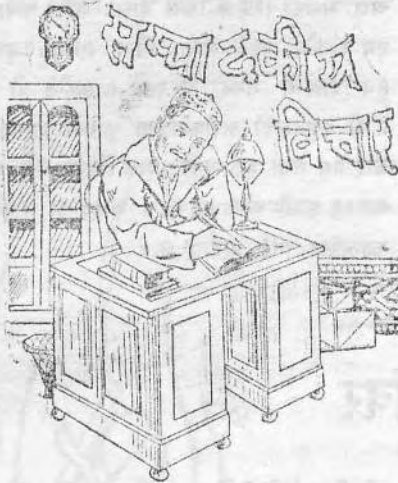 सम्पादकीय
विचार